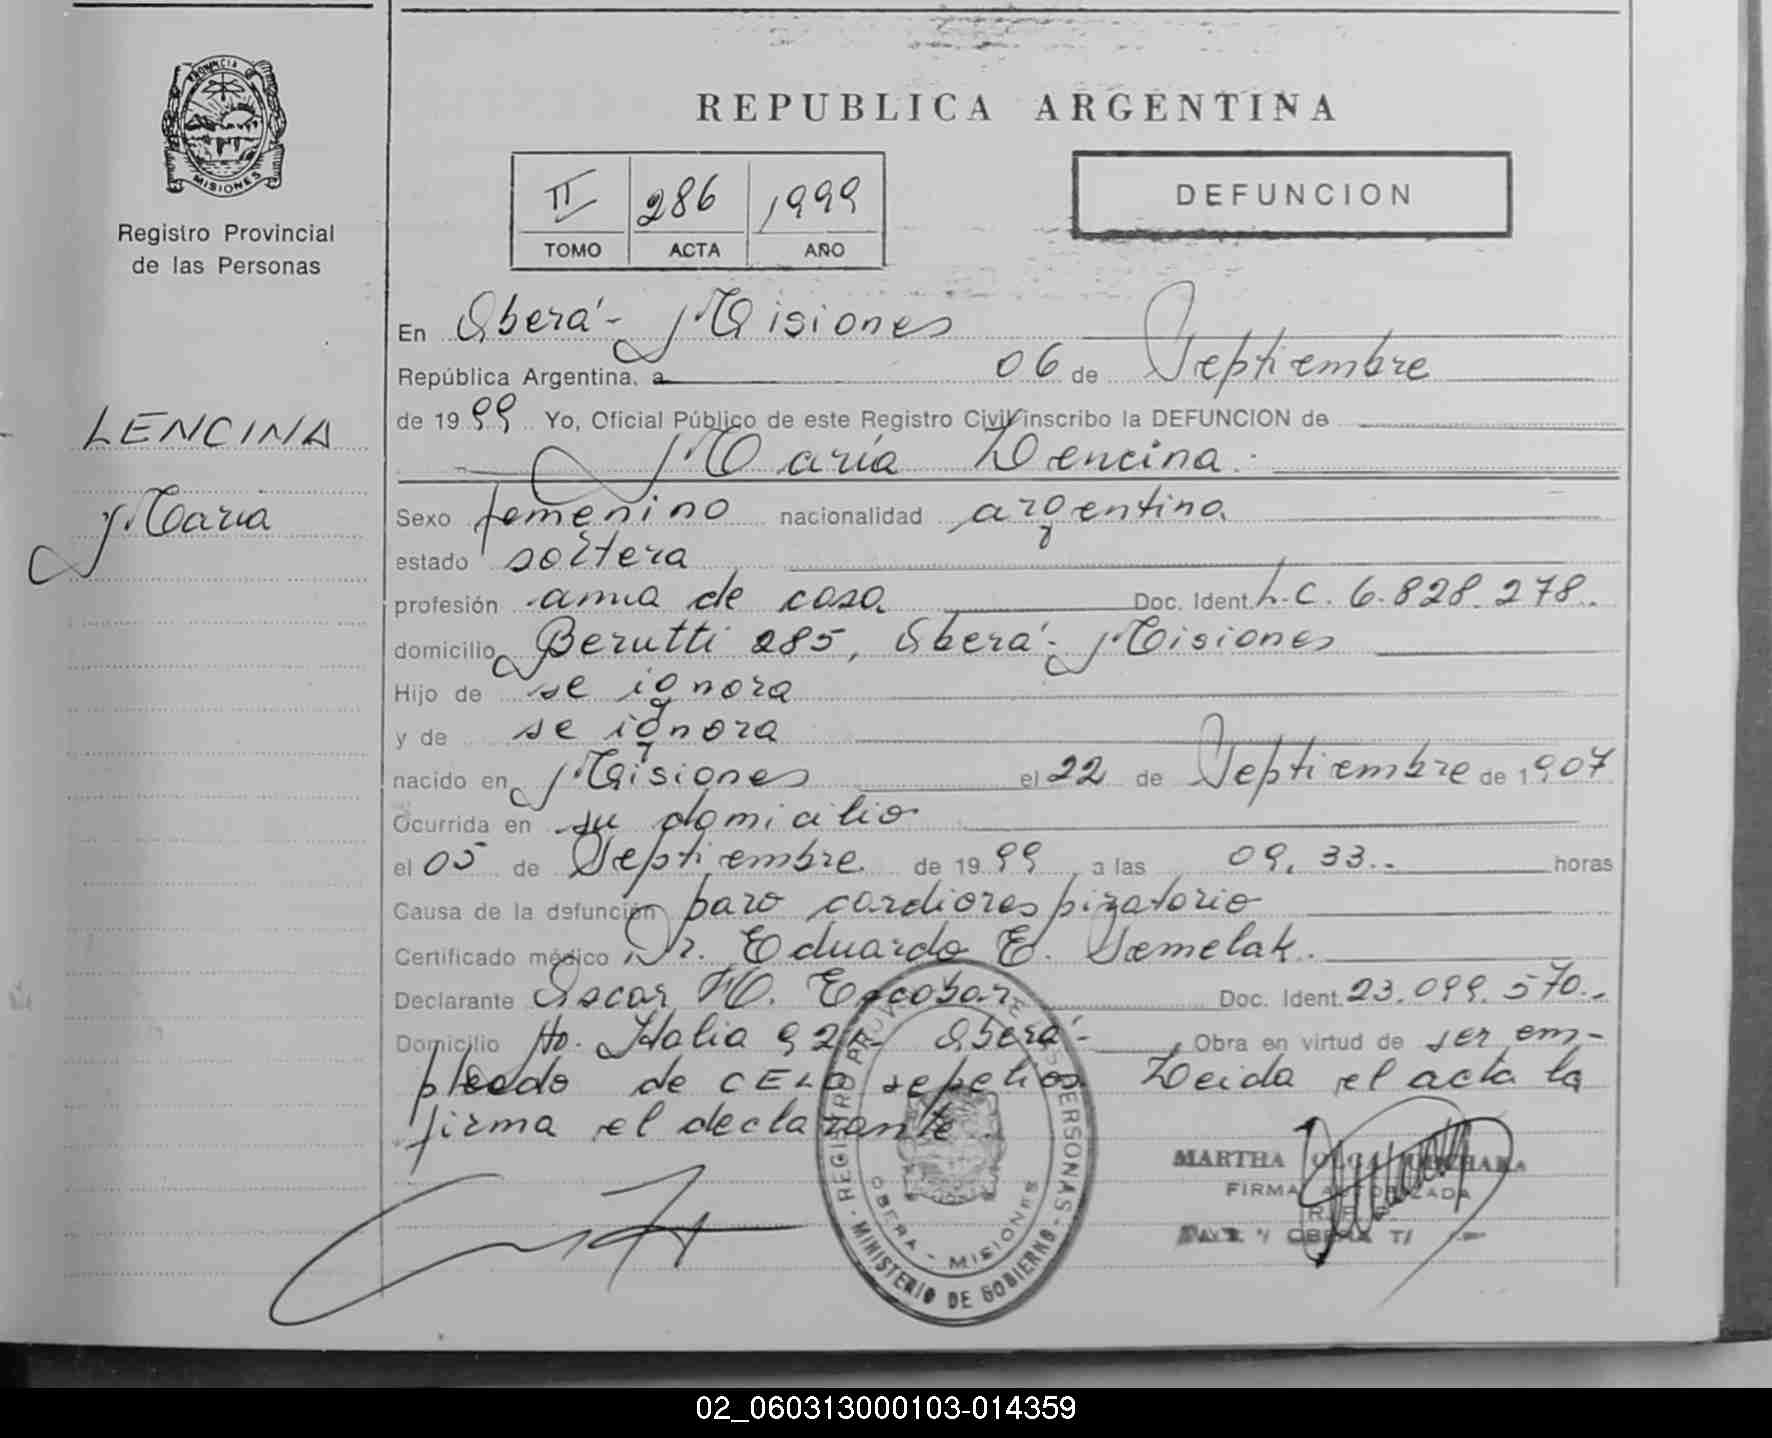 PROVINCIA DE
MISIONES
Registro Provincial
de las Personas
LENCINA
Maria
REPUBLICA ARGENTINA
II 286 1999
TOMO ACTA AÑO
DEFUNCION
En Oberá - Misiones
República Argentina, a 06 de Septiembre
de 1999 Yo, Oficial Público de este Registro Civil inscribo la DEFUNCION de
María Lencina.
Sexo femenino nacionalidad argentina
estado soltera
profesión ama de casa Doc. Ident. L.C. 6.828.278.
domicilio Berutti 285, Oberá - Misiones
Hijo de se ignora
y de se ignora
nacido en Misiones el 22 de Septiembre de 1907
Ocurrida en su domicilio
el 05 de Septiembre de 1999 a las 09,33.. horas
Causa de la defunción paro cardiorespiratorio
Certificado médico Dr. Eduardo E.
Declarante Oscar Escobar Doc. Ident. 23.099.570..
Domicilio Italia Oberá - Obra en virtud de ser em-
pleado de CELO sepelios Leida el acta la
firma el declarante
REGISTRO PERSONAS
OBERA - MISIONES
MINISTERIO DE GOBIERNO
MARTHA OLGA
FIRMA AUTORIZADA
02_060313000103-014359